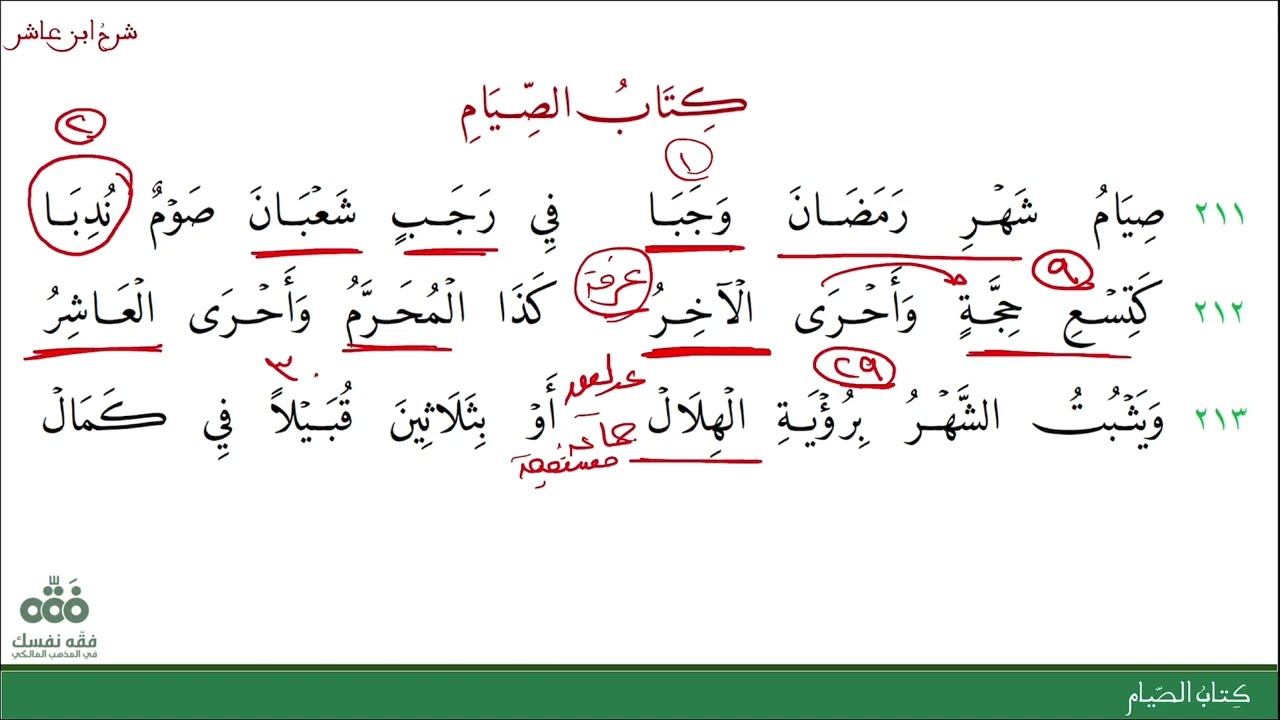 شرح ابن عاشر
كِتَابُ الصِّيَامِ
٢
١
٢١١ صِيَامُ شَهْرِ رَمَضَانَ وَجَبَا فِي رَجَبٍ شَعْبَانَ صَوْمٌ نُدِبَا
٩
عرفة
٢١٢ كَتِسْعِ حِجَّةٍ وَأَحْرَى الْآخِرُ كَذَا الْمُحَرَّمُ وَأَحْرَى الْعَاشِرُ
٢٩
٣٠
٢١٣ وَيَثْبُتُ الشَّهْرُ بِرُؤْيَةِ الْهِلَالْ أَوْ بِثَلَاثِينَ قُبَيْلاً فِي كَمَالْ
مستفيضة
فَقّه
فقّه نفسك
في المذهب المالكي
كتاب الصّيام